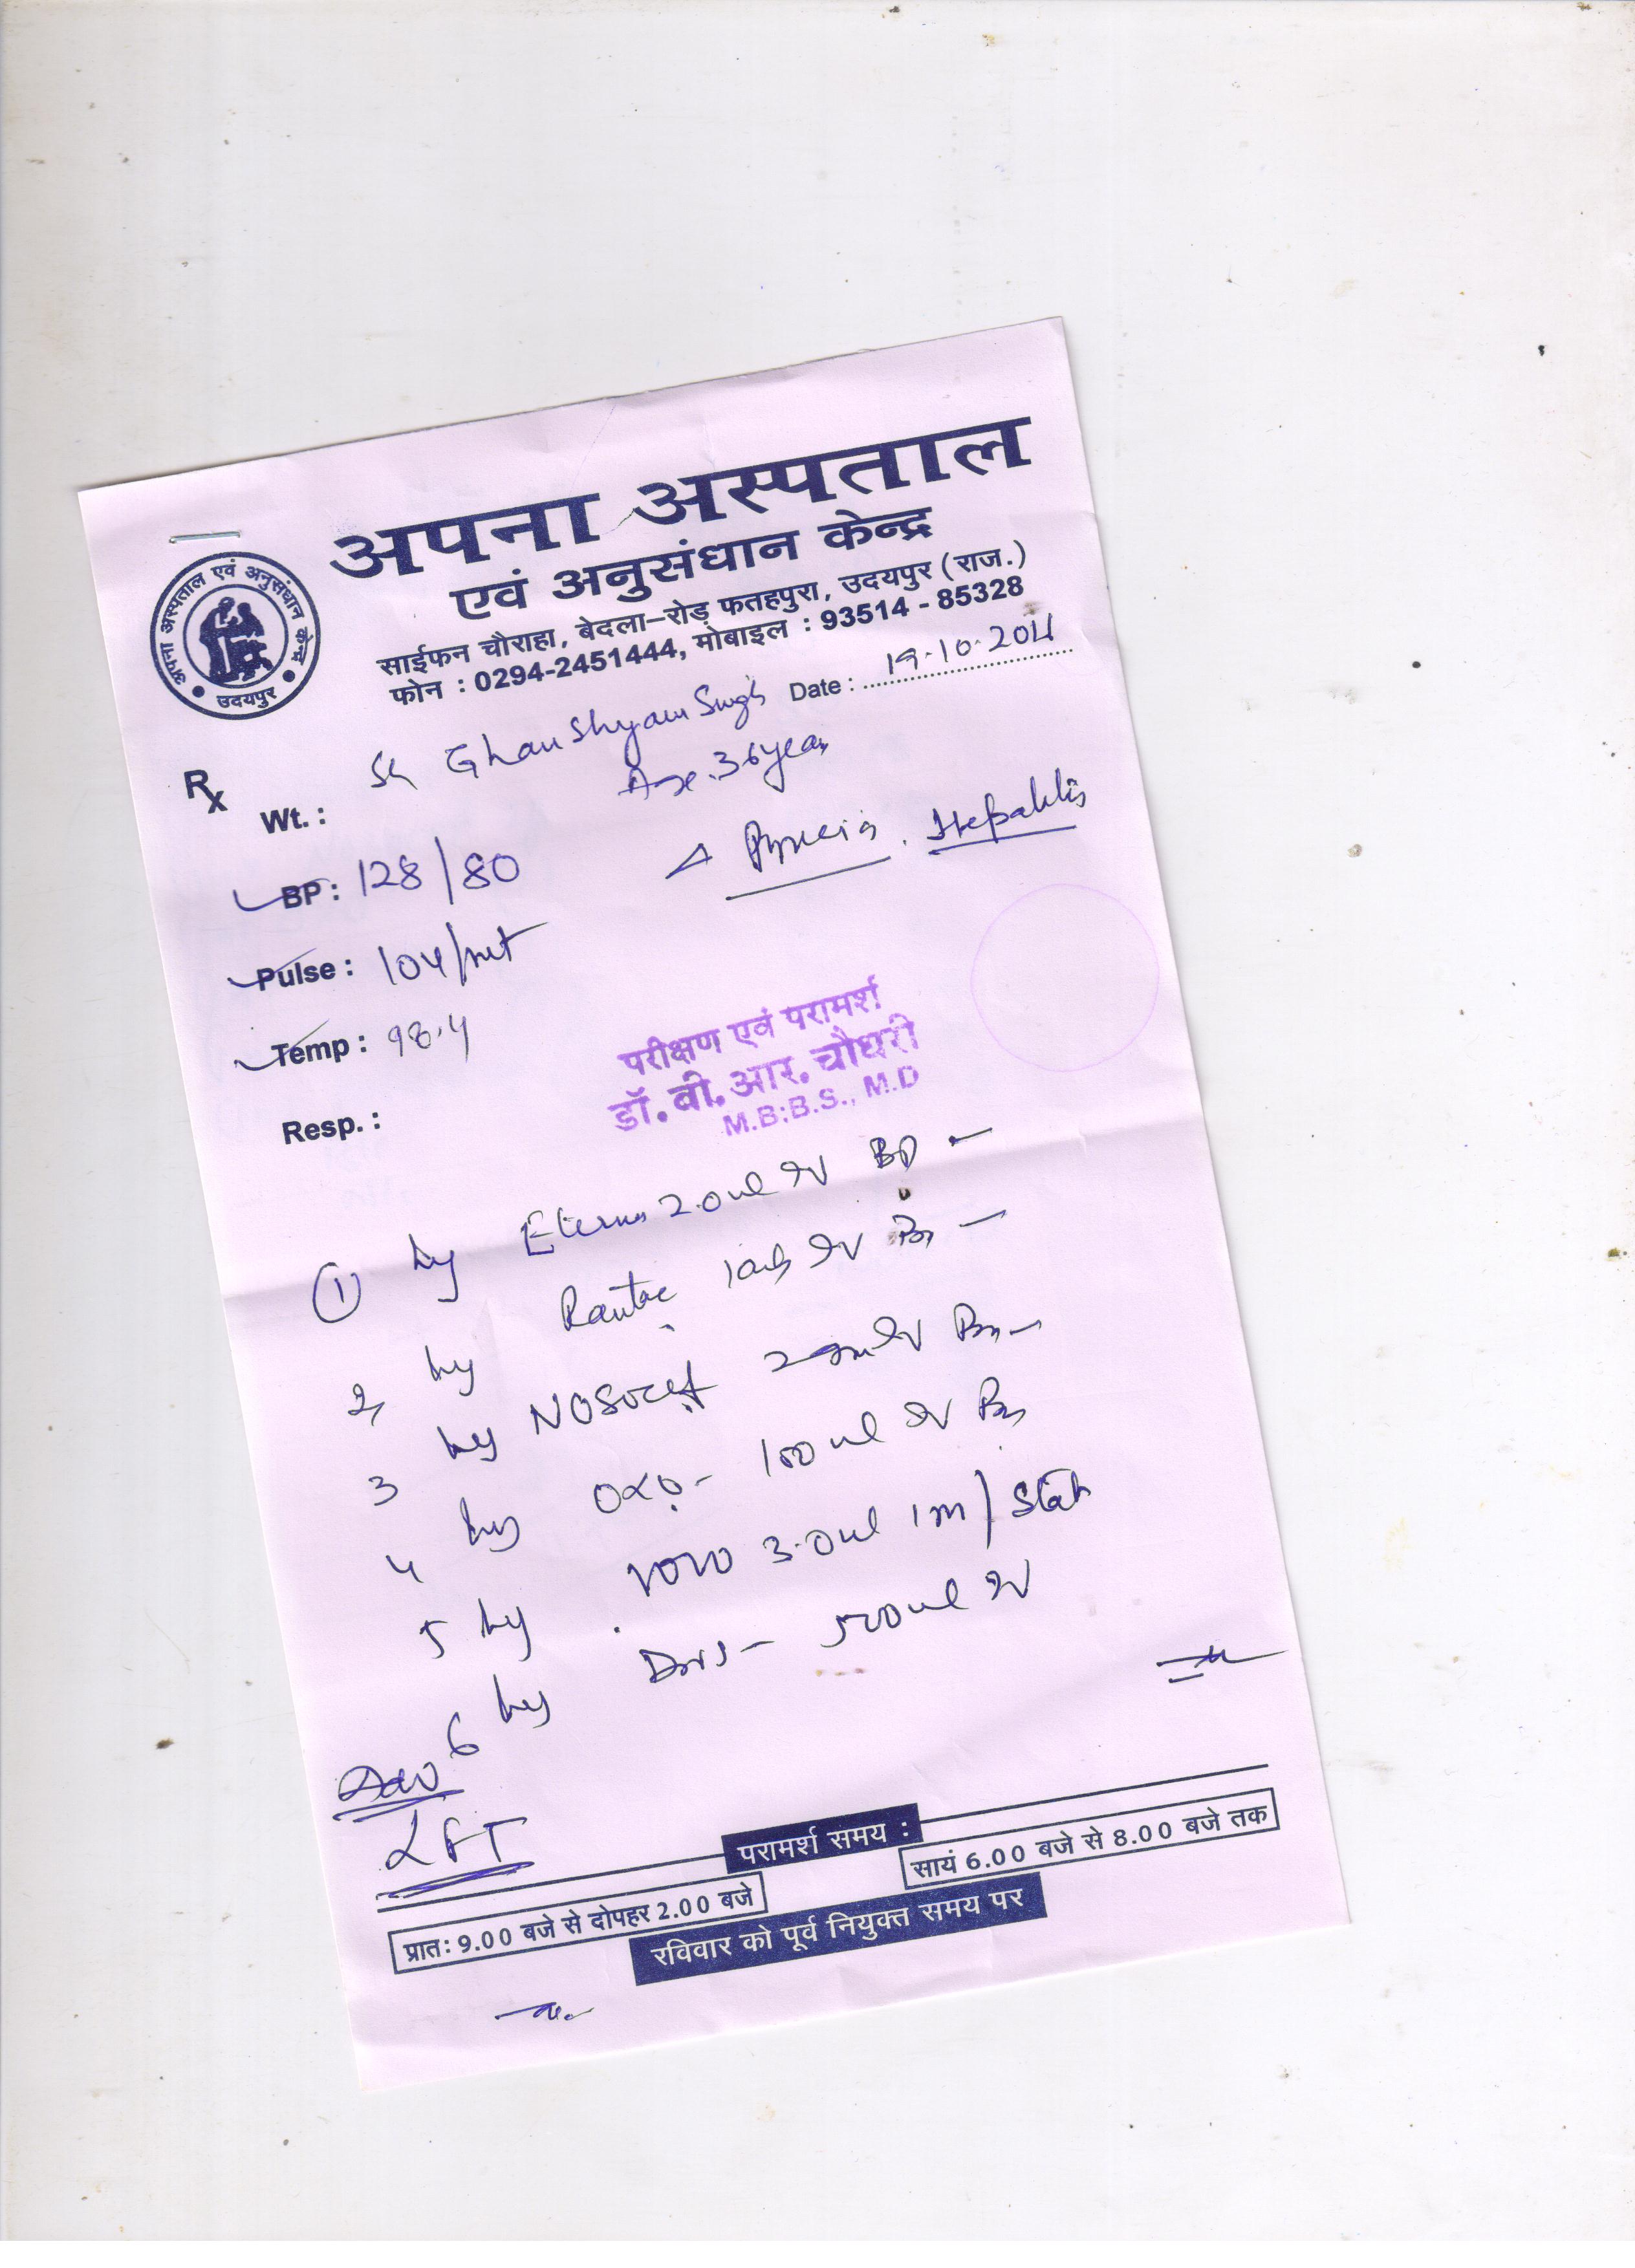 अपना अस्पताल
एवं अनुसंधान केन्द्र
साईफन चौराहा, बेदला-रोड़ फतहपुरा, उदयपुर (राज.)
फोन : 0294-2451444, मोबाइल : 93514 - 85328
अपना अस्पताल एवं अनुसंधान केन्द्र
उदयपुर
Date : 19-10-2011
Rx
Ghanshyam Singh
Wt. :
Age. 36 year
BP : 128/80
Pyrexia. Hepatitis
Pulse : 104/mt
Temp : 98.4
Resp. :
परीक्षण एवं परामर्श
डॉ. बी. आर. चौधरी
M.B.B.S., M.D
① Inj 2.0ml IV BD -
2, Inj Rantac IV
3 Inj Nosocef IV
4 Inj 100 ml IV
5 Inj 3.0ml IM / Stat
6 Inj DNS - 500ml IV
Adv
LFT
परामर्श समय :
प्रात: 9.00 बजे से दोपहर 2.00 बजे
सायं 6.00 बजे से 8.00 बजे तक
रविवार को पूर्व नियुक्त समय पर